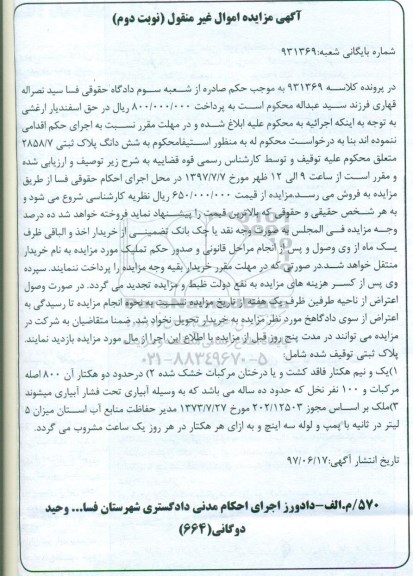 آگهی مزایده اموال غیر منقول (نوبت دوم)
شماره بایگانی شعبه:۹۳۱۳۶۹
در پرونده کلاسه ۹۳۱۳۶۹ به موجب حکم صادره از شعبه سوم دادگاه حقوقی فسا سید نصراله
قهاری فرزند سید عبداله محکوم است به پرداخت ۸۰۰/۰۰۰/۰۰۰ ریال در حق اسفندیار ارغشی
به توجه به اینکه اجرائیه به محکوم علیه ابلاغ شده و در مهلت مقرر نسبت به اجرای حکم اقدامی
ننموده اند بنا به درخواست محکوم له به منظور استیفامحکوم به شش دانگ پلاک ثبتی ۲۸۵۸/۷
متعلق محکوم علیه توقیف و توسط کارشناس رسمی قوه قضاییه به شرح زیر توصیف و ارزیابی شده
و مقرر است از ساعت ۹ الی ۱۲ ظهر مورخ ۱۳۹۷/۷/۷ در محل اجرای احکام حقوقی فسا از طریق
مزایده به فروش می رسد.مزایده از قیمت ۶۵۰/۰۰۰/۰۰۰ ریال نظریه کارشناسی شروع می شود و
به هر شخص حقیقی و حقوقی که بالاترین قیمت را پیشنهاد نماید فروخته خواهد شد ده درصد
وجه مزایده فی المجلس به صورت وجه نقد یا چک بانک تضمینی از خریدار اخذ و الباقی ظرف
یک ماه از وی وصول و پس از انجام مراحل قانونی و صدور حکم تملیک مورد مزایده به نام خریدار
منتقل خواهد شد.در صورتی که در مهلت مقرر خریدار بقیه وجه مزایده را پرداخت ننمایند. سپرده
وی پس از کسر هزینه های مزایده به نفع دولت ظبط و مزایده تجدید می گردد. در صورت وصول
اعتراض از ناحیه طرفین ظرف یک هفته از تاریخ مزایده نسبت به نحوه انجام مزایده تا رسیدگی به
اعتراض از سوی دادگاهخ مورد نظر مزایده به خریدار تحویل نخواهد شد. ضمنا متقاضیان به شرکت در
مزایده می توانند در مدت پنج روز قبل از مزایده با اطلاع این اجرا از مال مورد مزایده بازدید نمایند.
پلاک ثبتی توقیف شده شامل:
۱)یک و نیم هکتار فاقد کشت و یا درختان مرکبات خشک شده ۲) درحدود دو هکتار آن ۸۰۰ اصله
مرکبات و ۱۰۰ نفر نخل که حدود ده ساله می باشد که به وسیله آبیاری تحت فشار آبیاری میشوند
۳)ملک بر اساس مجوز ۲۰۲/۱۲۵۰۳ مورخ ۱۳۷۳/۷/۲۷ مدیر حفاظت منابع آب استان میزان ۵
لیتر در ثانیه با پمپ و لوله سه اینچ و به ازای هر هکتار در هر روز یک ساعت مشروب می گردد.
تاریخ انتشار آگهی:۹۷/۰۶/۱۷
۵۷۰/م.الف-دادورز اجرای احکام مدنی دادگستری شهرستان فسا... وحید
دوگانی(۶۶۴)
۰۲۱-۸۸۳۴۹۶۷۰-۵